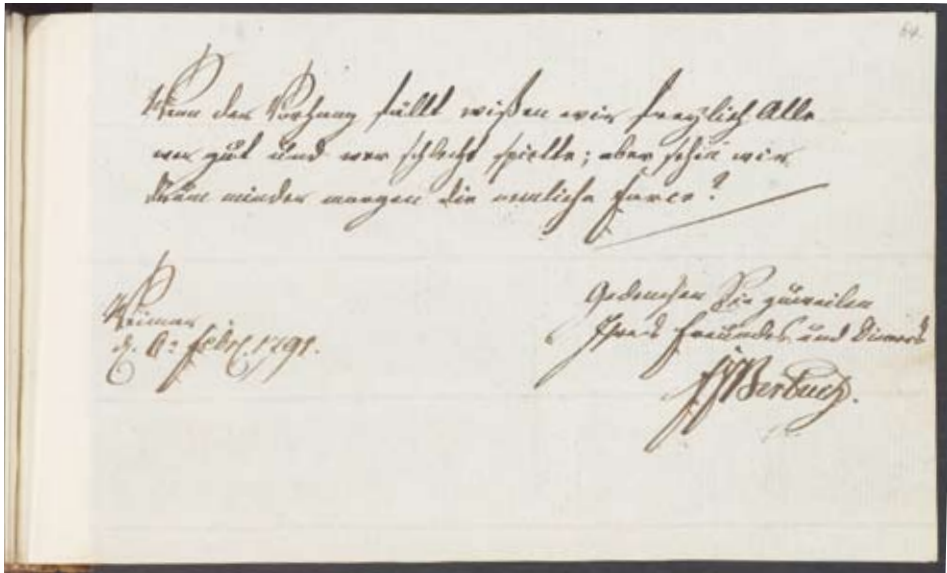 64.
Wenn der Vorhang fällt wißen wir freylich Alle
wer gut und wer schlecht spielte; aber sehn wir
drum minder morgen die nemliche Farce?
Weimar
d. 6n Febr. 1791.
Gedencken Sie zuweilen
Ihres Freundes und Dieners
FJBertuch.